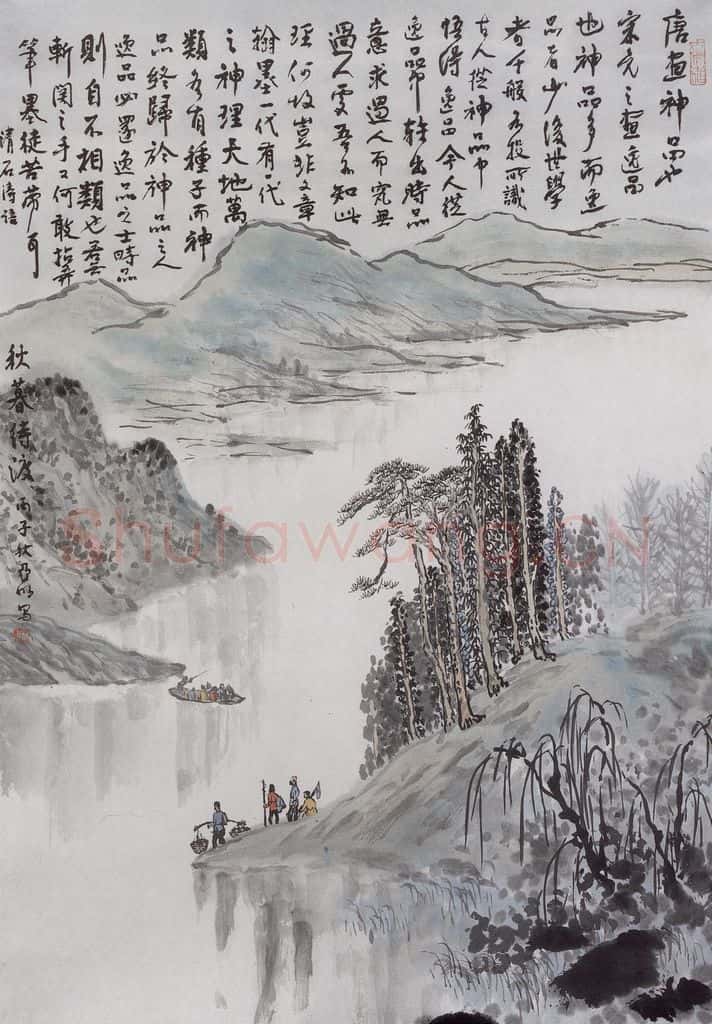 唐畫神品也
宋元之畫逸品
也神品多而逸
品者少後世學
者千般各投所識
古人從神品中
悟得逸品今人從
逸品中轉出時品
意求過人而究無
過人處吾不知此
理何故豈非文章
翰墨一代有一代
之神理天地萬
類各有種子而神
品終歸於神品之人
逸品必還逸品之士時品
則自不相類也若無
斬関之手又何敢拈弄
筆墨徒苦勞耳
清石濤語
秋暮待渡 丙子秋亞明写
Shufawang.CN